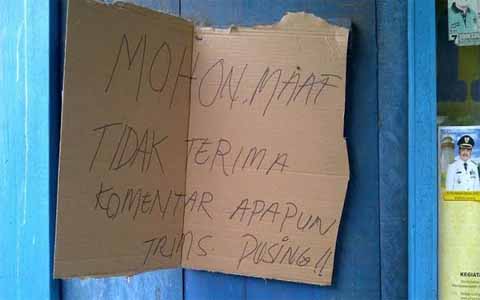 MOHON, MAAF
TIDAK TERIMA
KOMENTAR APAPUN
TRIMS. PUSING!!
7
KEGIATA